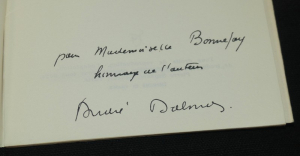 pour Mademoiselle Bonnefoy
hommage de l'auteur
André Dalmas.